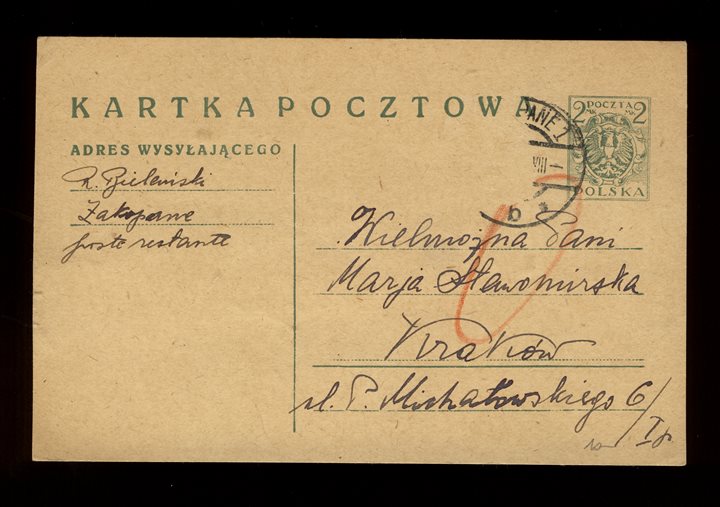 KARTKA POCZTOW
2 POCZTA 2
POLSKA
PANE 1
VIII
b *
ADRES WYSYŁAJĄCEGO
R. Bieleński
Zakopane
poste restante
Wielmożna Pani
Marja Sławomirska
Kraków
ul. P. Michałowskiego 6/I p